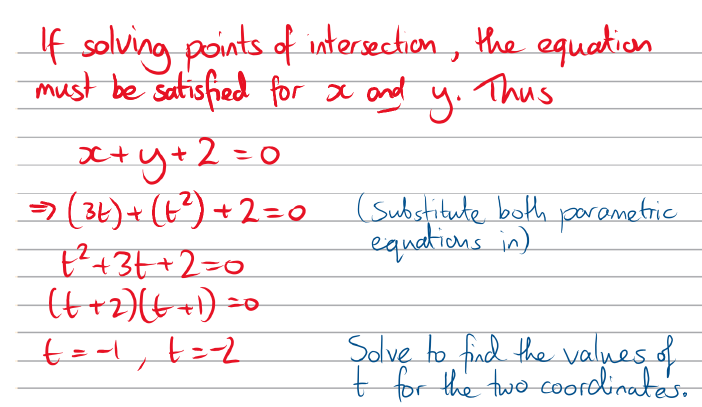 If solving points of intersection, the equation
must be satisfied for x and y. Thus
x+y+2=0
⇒ (3t)+(t²)+2=0 (Substitute both parametric
equations in)
t²+3t+2=0
(t+2)(t+1)=0
t=-1, t=-2 Solve to find the values of
t for the two coordinates.